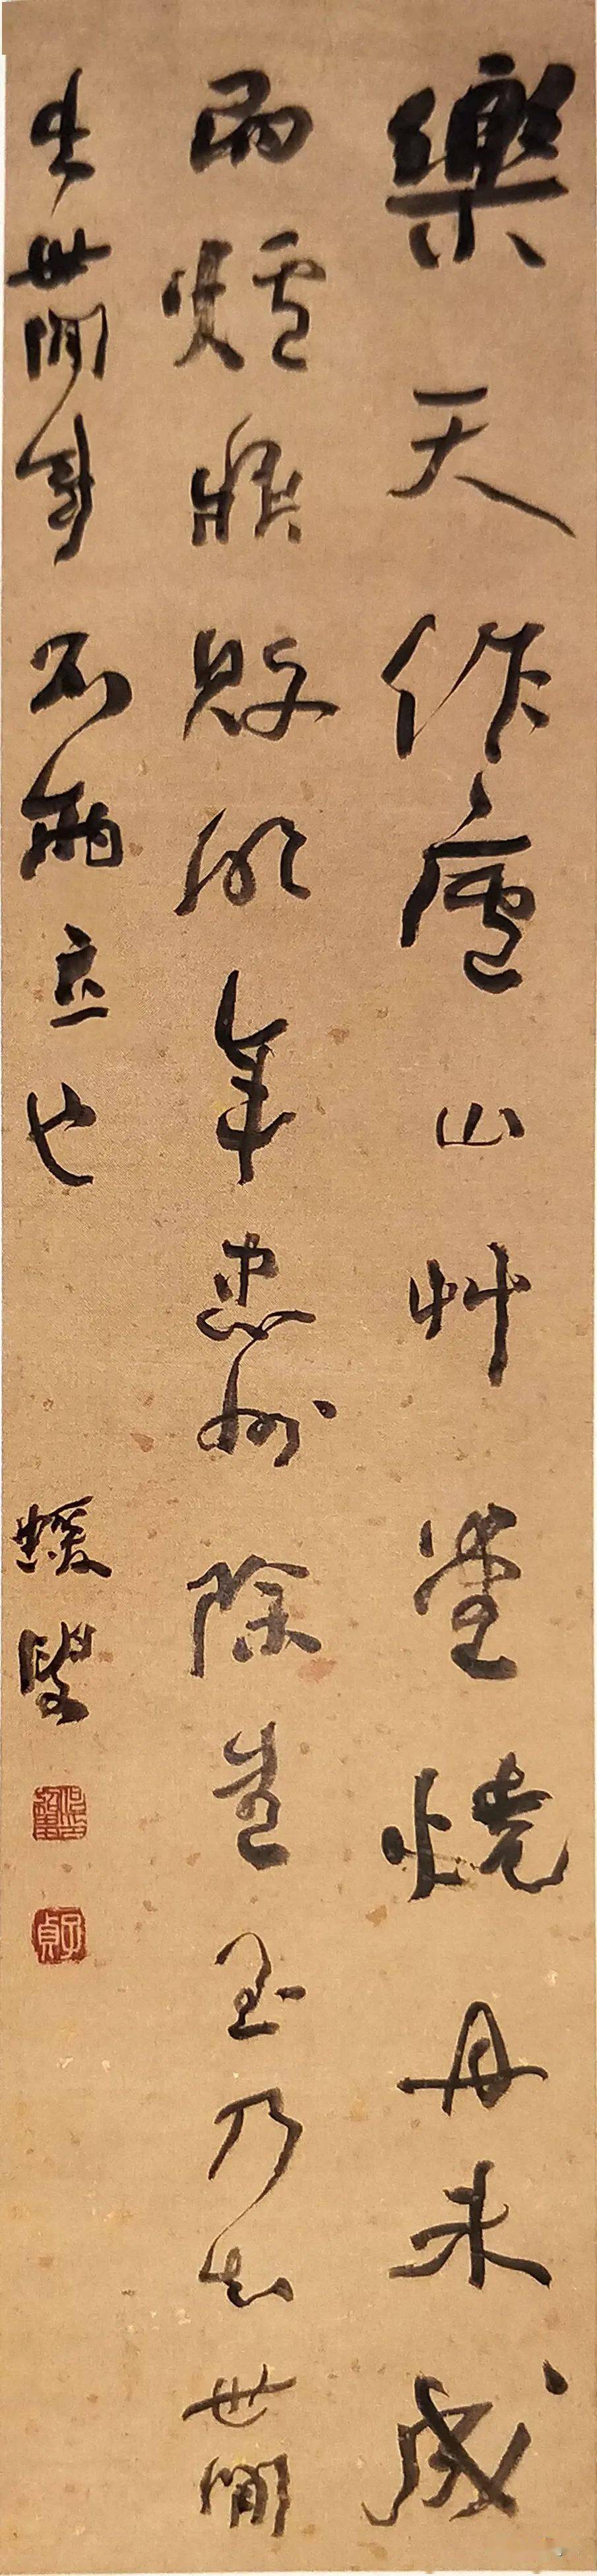 樂天作廬山艸堂燒丹未成
而爐鼎敗明年忠州除書至乃知世間
出世間事不兩立也
蝯叟
子貞